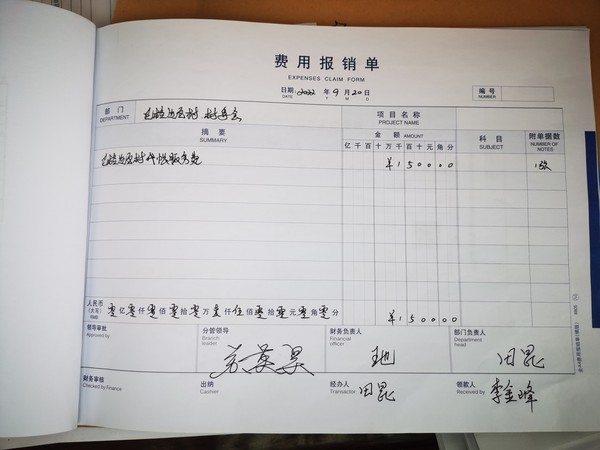 费用报销单
EXPENSES CLAIM FORM
日期 2022 年 9 月 20 日
DATE Y M D
编号
NUMBER
部门
DEPARTMENT
项目名称
PROJECT NAME
摘要
SUMMARY
金额 AMOUNT
亿千百十万千百十元角分
科目
SUBJECT
附单据数
NUMBER OF NOTES
¥150000
人民币
(大写)
RMB
零亿零仟零佰零拾零万壹仟伍佰零拾零元零角零分
¥150000
领导审批
Approved by
分管领导
Branch leader
财务负责人
Financial officer
部门负责人
Department head
田昆
财务审核
Checked by Finance
出纳
Cashier
经办人
Transactor
田昆
领款人
Received by
李金峰